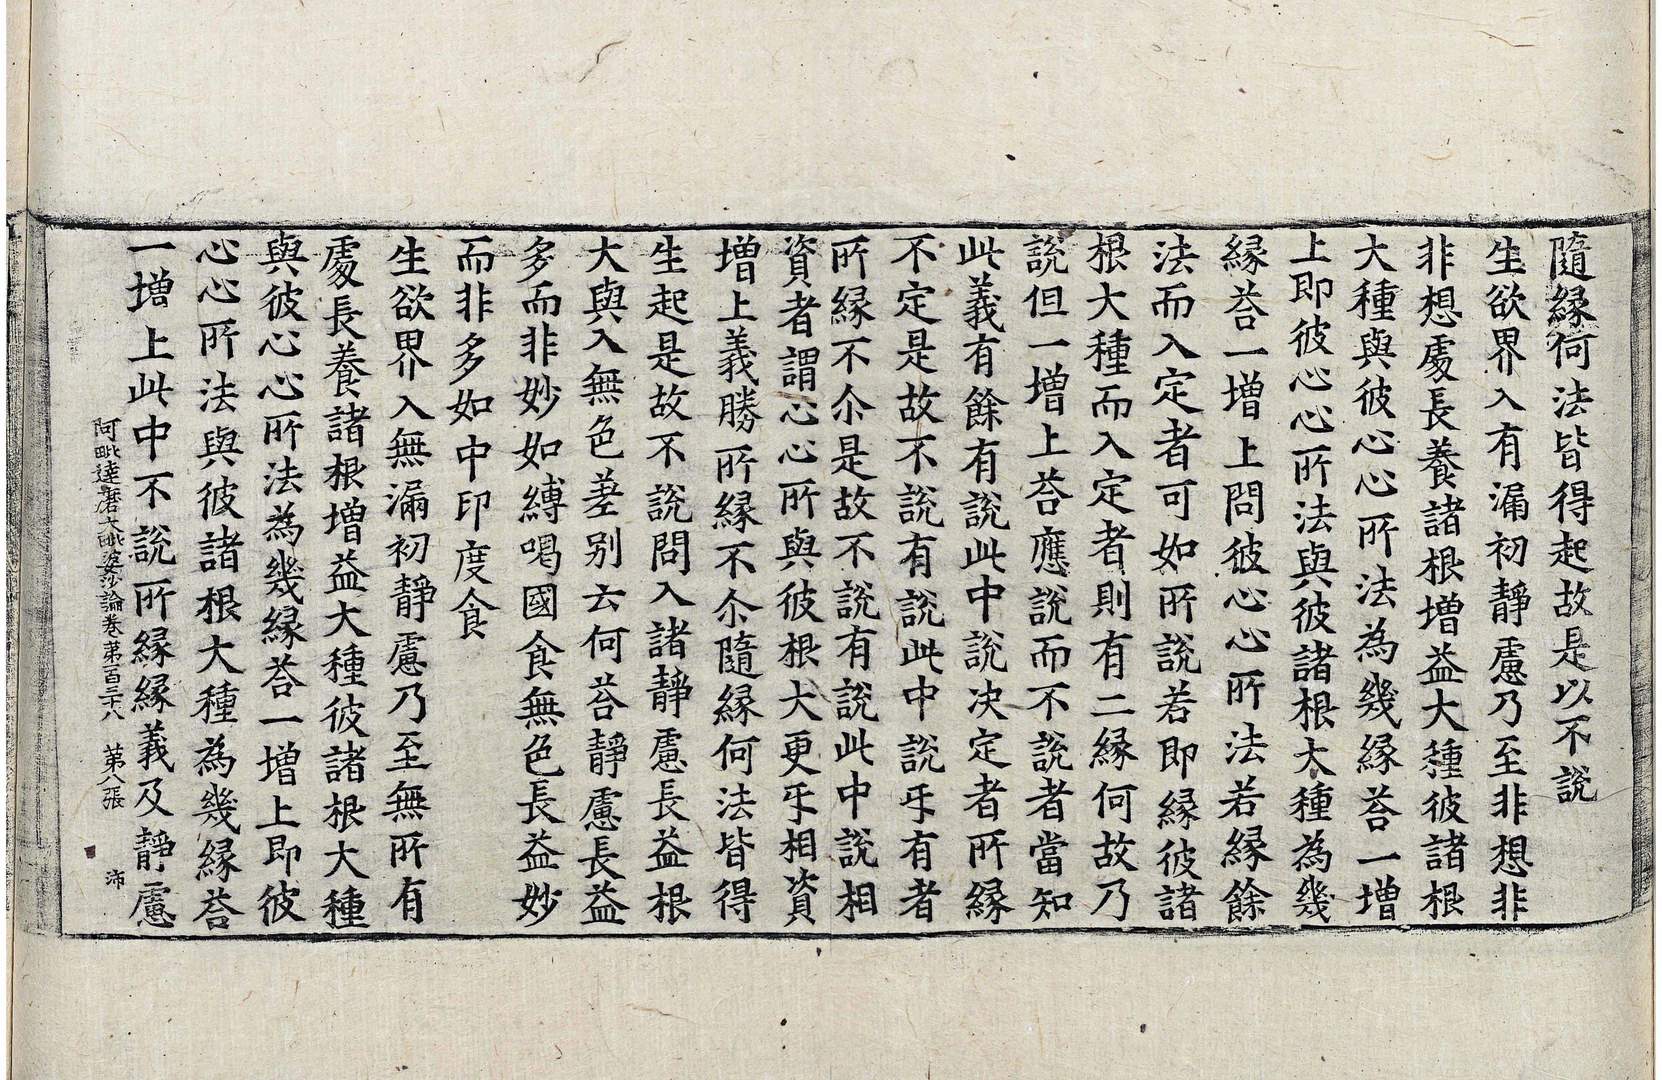 隨縁何法皆得起故是以不說
生欲界入有漏初靜慮乃至非想非
非想處長養諸根增益大種彼諸根
大種與彼心心所法為幾縁荅一增
上即彼心心所法與彼諸根大種為幾
縁荅一增上問彼心心所法若縁餘
法而入定者可如所說若即縁彼諸
根大種而入定者則有二縁何故乃
說但一增上荅應說而不說者當知
此義有餘有說此中說决定者所縁
不定是故不說有說此中說㸦有者
所縁不尒是故不說有說此中說相
資者謂心心所與彼根大更㸦相資
增上義勝所縁不尒隨縁何法皆得
生起是故不說問入諸靜慮長益根
大與入無色差别云何荅靜慮長益
多而非妙如縛喝國食無色長益妙
而非多如中印度食
生欲界入無漏初靜慮乃至無所有
處長養諸根增益大種彼諸根大種
與彼心心所法為幾縁荅一增上即彼
心心所法與彼諸根大種為幾縁荅
一增上此中不說所縁縁義及靜慮
阿毗達磨大毗婆沙論卷苐百三十八 苐八張 沛